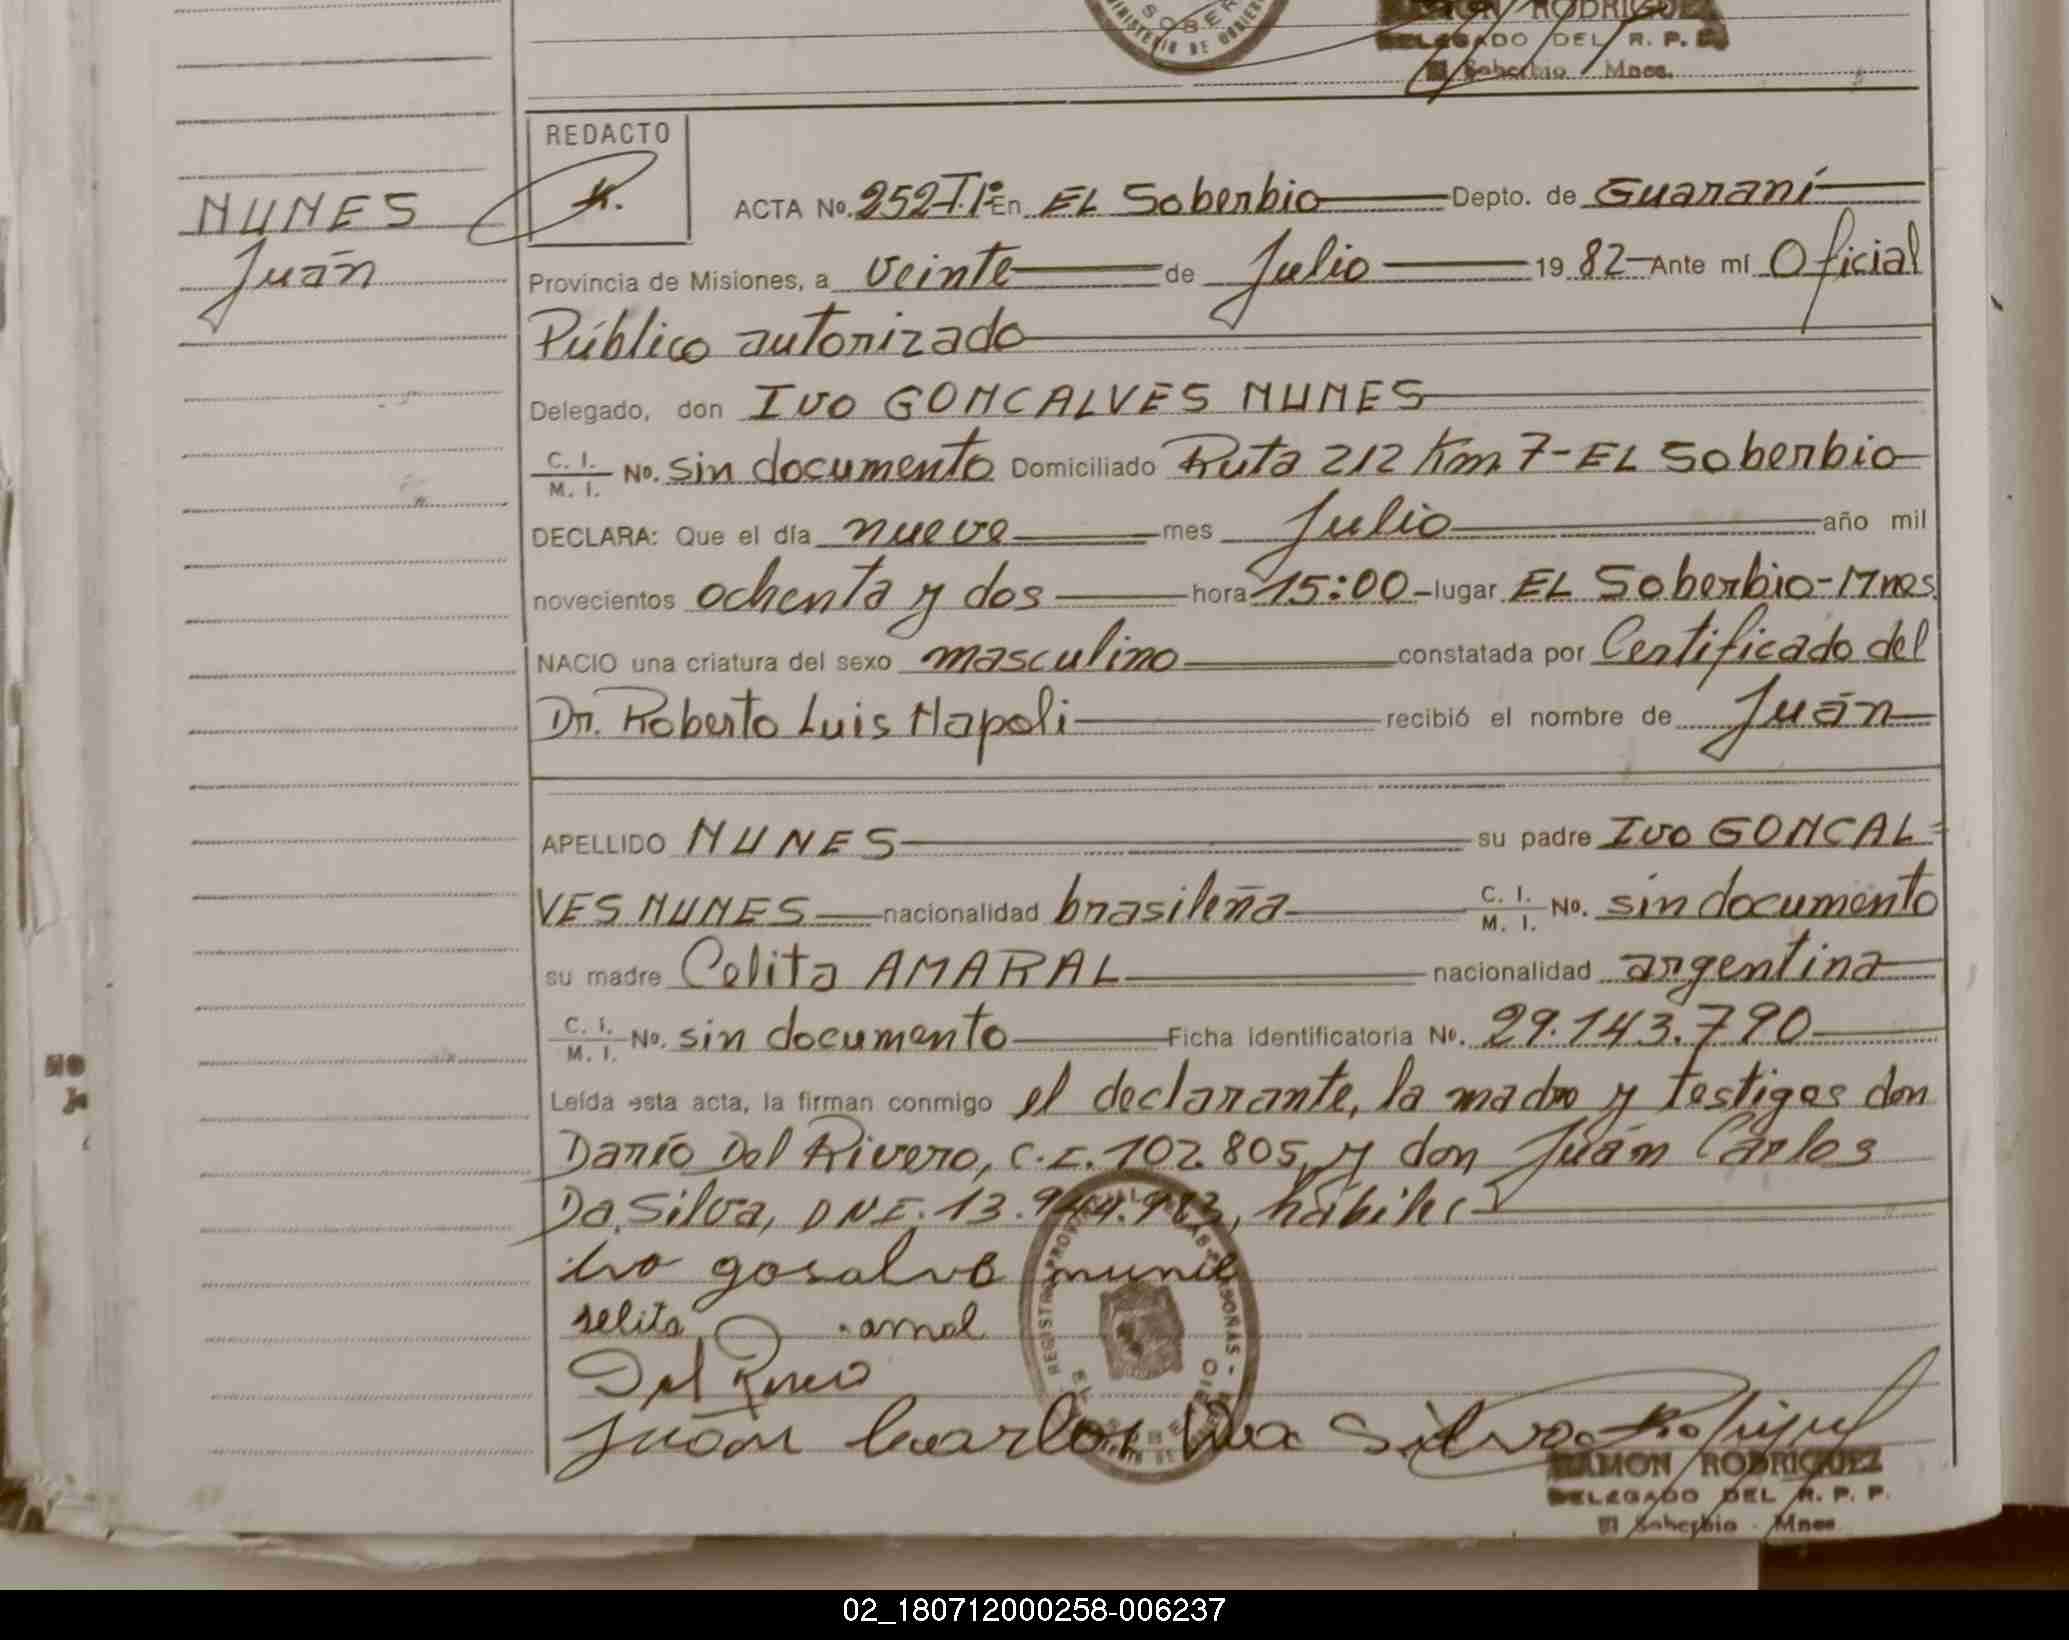 SOBER
MINISTERIO DE GOBIER
RAMON RODRIGUEZ
DELEGADO DEL R. P. P.
El Soberbio - Mnes.
REDACTO
NUNES
Juán
ACTA No. 252-T.1º En EL Soberbio Depto. de Guaraní
Provincia de Misiones, a veinte de Julio 19 82 Ante mí Oficial
Público autorizado
Delegado, don IVO GONCALVES NUNES
C. I. / M. I. No. sin documento Domiciliado Ruta 212 Km 7 - EL Soberbio
DECLARA: Que el día nueve mes Julio año mil
novecientos ochenta y dos hora 15:00 - lugar EL Soberbio - Mnes.
NACIO una criatura del sexo masculino constatada por Certificado del
Dr. Roberto Luis Napoli recibió el nombre de Juán
APELLIDO NUNES su padre IVO GONCAL=
VES NUNES nacionalidad brasileña C. I. / M. I. No. sin documento
su madre Celita AMARAL nacionalidad argentina
C. I. / M. I. No. sin documento Ficha identificatoria No. 29.143.790
Leída esta acta, la firman conmigo el declarante, la madre y testigos don
Darío Del Rivero, C.I. 102.805, y don Juán Carlos
Da Silva, DNI. 13. hábiles
ivo gosalve munes
selita amal
Del Rivero
Juan Carlos Da Silva
REGISTRO PROVINCIAL DE LAS PERSONAS - EL SOBERBIO
RAMON RODRIGUEZ
DELEGADO DEL R. P. P.
El Soberbio - Mnes
02_180712000258-006237